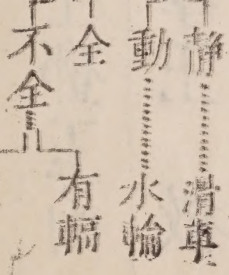 靜 滑車
動 水輪
全
不全
有輻